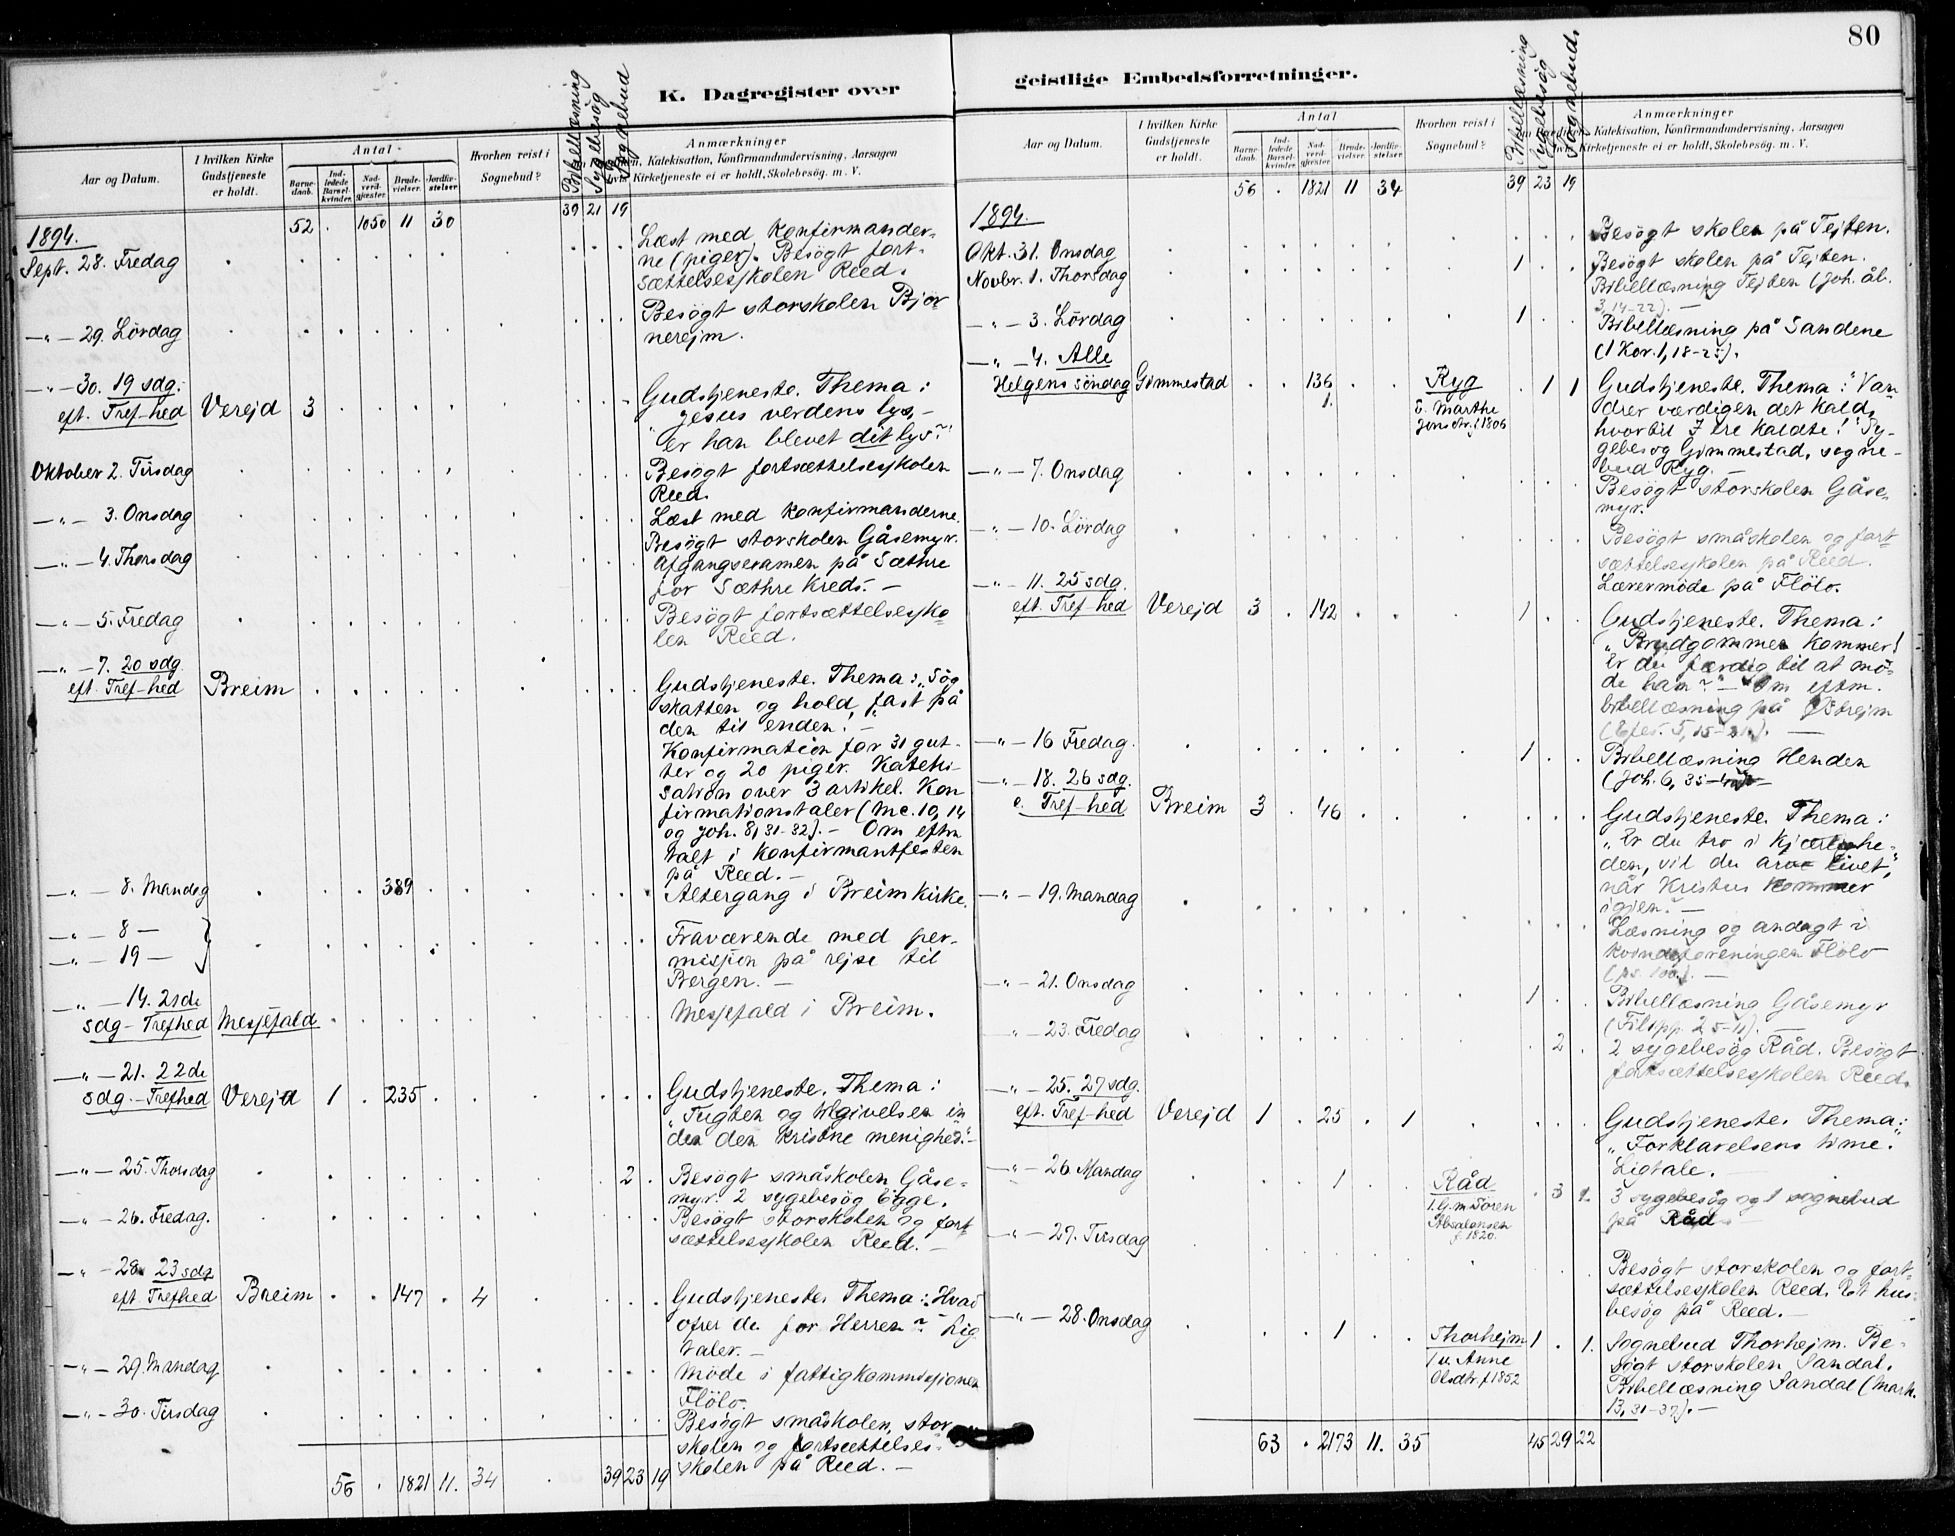 80
K. Dagregister over
geistlige Embedsforretninger.
Aar og Datum.
I hvilken Kirke Gudstjeneste er holdt.
Antal
Barnedaab.
Indledede Barselkvinder.
Nadverdgjester.
Brudevielser.
Jordfæstelser
Hvorhen reist i Sognebud?
Bibellæsning
Sygebesøg
Sognebud
Anmærkninger
Katekisation, Konfirmandundervisning, Aarsagen
hvis Kirketjeneste ei er holdt, Skolebesøg. m. V.
52 . 1050 11 30 39 21 19
1894.
Sept. 28. Fredag
Læst med konfirmander-
ne (piger). Besøgt fort-
sættelsesskolen Reed.
—„— 29. Lördag
Besøgt storskolen Bjør
nerejm.
—„— 30. 19 sdg.
eft. Tref-hed Verejd 3
Gudstjeneste. Thema:
„Jesus verdens lys, –
er han blevet dit lys?"
Oktober 2. Tirsdag
Besøgt fortsættelsesskolen
Reed.
—„— 3. Onsdag
Læst med konfirmanderne.
Besøgt storskolen Gåsemyr.
—„— 4. Thorsdag
Afgangsexamen på Sæthre
for Sæthre kreds. –
—„— 5. Fredag
Besøgt fortsættelsessko
len Reed.
—„— 7. 20 sdg.
eft. Tref-hed Breim
Gudstjeneste. Thema: „Søg
skatten og hold fast på
den til enden! –
Konfirmation for 31 gut-
ter og 20 piger. Kateki-
sation over 3 artikel. Kon
firmationstaler (Mc. 10, 14
og Joh. 8, 31-32). – Om eftm
talt i konfirmantfesten
på Reed. –
—„— 8. Mandag 389
Altergang i Breim kirke.
—„— 8 —
—„— 19 —
Fraværende med per-
misjon på rejse til
Bergen. –
—„— 14. 21de
sdg – Trefhed Messefald
Messefald i Breim.
—„— 21. 22de
sdg. – Trefhed Verejd 1 . 235
Gudstjeneste. Thema:
„Tugten og tilgivelsen in
den den kristne menighed." –
—„— 25. Thorsdag 2
Besøgt småskolen Gåse-
myr. 2 sygebesøg Egge.
—„— 26. Fredag.
Besøgt storskolen og fort
sættelsesskolen Reed. –
—„— 28. 23 sdg
eft Trefhed Breim 147 . 4
Gudstjeneste. Thema: „Hvad
ofrer du for Herren?" Lig
taler. –
—„— 29. Mandag
Møde i fattigkommissionen
Flölo.
—„— 30. Tirsdag
Besøgt småskolen, stor
skolen og fortsættelses-
skolen på Reed. –
56 . 1821 11. 34 39 23 19
Aar og Datum.
I hvilken Kirke Gudstjeneste er holdt.
Antal
Barnedaab.
Indledede Barselkvinder.
Nadverdgjester
Brudevielser.
Jordfæstelser
Hvorhen reist i Sognebud?
Bibellæsning
Sygebesøg
Sognebud.
Anmærkninger
Katekisation, Konfirmandundervisning, Aarsagen
hvis Kirketjeneste ei er holdt, Skolebesøg. m. V.
56 . 1821 11 34 39 23 19
1894.
Okt. 31. Onsdag
Besøgt skolen på Tejten.
Novbr. 1. Thorsdag 1
Besøgt skolen på Tejten.
Bibellæsning Tejten (Joh. åb.
3, 14-22). –
—„— 3. Lördag 1
Bibellæsning på Sandene
(1 Kor. 1, 18-25).
—„— 4. Alle
Helgens söndag Gimmestad 136 1. Ryg . 1 1
Marthe
Jensdtr. f 1806
Gudstjeneste. Thema: „Van-
drer værdigen det kald,
hvortil I ere kaldte!" Sy-
gebesøg Gimmestad, sogne-
bud Ryg. –
—„— 7. Onsdag
Besøgt storskolen Gåse-
myr.
—„— 10. Lördag
Besøgt småskolen og fort
sættelsesskolen på Reed.
Lærermøde på Flölo.
—„— 11. 25 sdg.
eft. Tref-hed Verejd 3 . 142 1
Gudstjeneste. Thema:
„Brudgommen kommer!
Er du færdig til at mö-
de ham?" – Om eftm.
bibellæsning på
(Efes. 5, 15-21). –
—„— 16 Fredag. 1
Bibellæsning Henden
(Joh. 6, 35-
—„— 18. 26 sdg.
e. Tref-hed Breim 3 . 46
Gudstjeneste. Thema:
„Er du tro i kjærlighe-
den, vil du arve livet,
når Kristus kommer
igjen." –
—„— 19. Mandag
Læsning og andagt i
kvindeforeningen Flölo
—„— 21. Onsdag 1
Bibellæsning Gåsemyr
(Filipp. 2, 5-11). –
—„— 23. Fredag 2
2 sygebesøg Råd. Besøgt
fortsættelsesskolen Reed.
—„— 25. 27 sdg.
eft. Tref-hed Verejd 1 . 25 . 1
Gudstjeneste. Thema:
„Forklarelsens time."
Ligtale.
—„— 26 Mandag 1 Råd . 3 1.
Sören
Absalonsen
f. 1820.
3 sygebesøg og 1 sognebud
på Råd. –
—„— 27. Tirsdag
Besøgt storskolen og fort-
sættelsesskolen Reed. Et hus-
besøg på Reed. –
—„— 28. Onsdag 1 Thorhejm 1 . 1.
Anne
Olsdtr. f 1852
Sognebud Thorhejm. Be-
søgt storskolen Sandal.
Bibellæsning Sandal (Mark.
13, 31-37). –
63 . 2173 11. 35 45 29 22